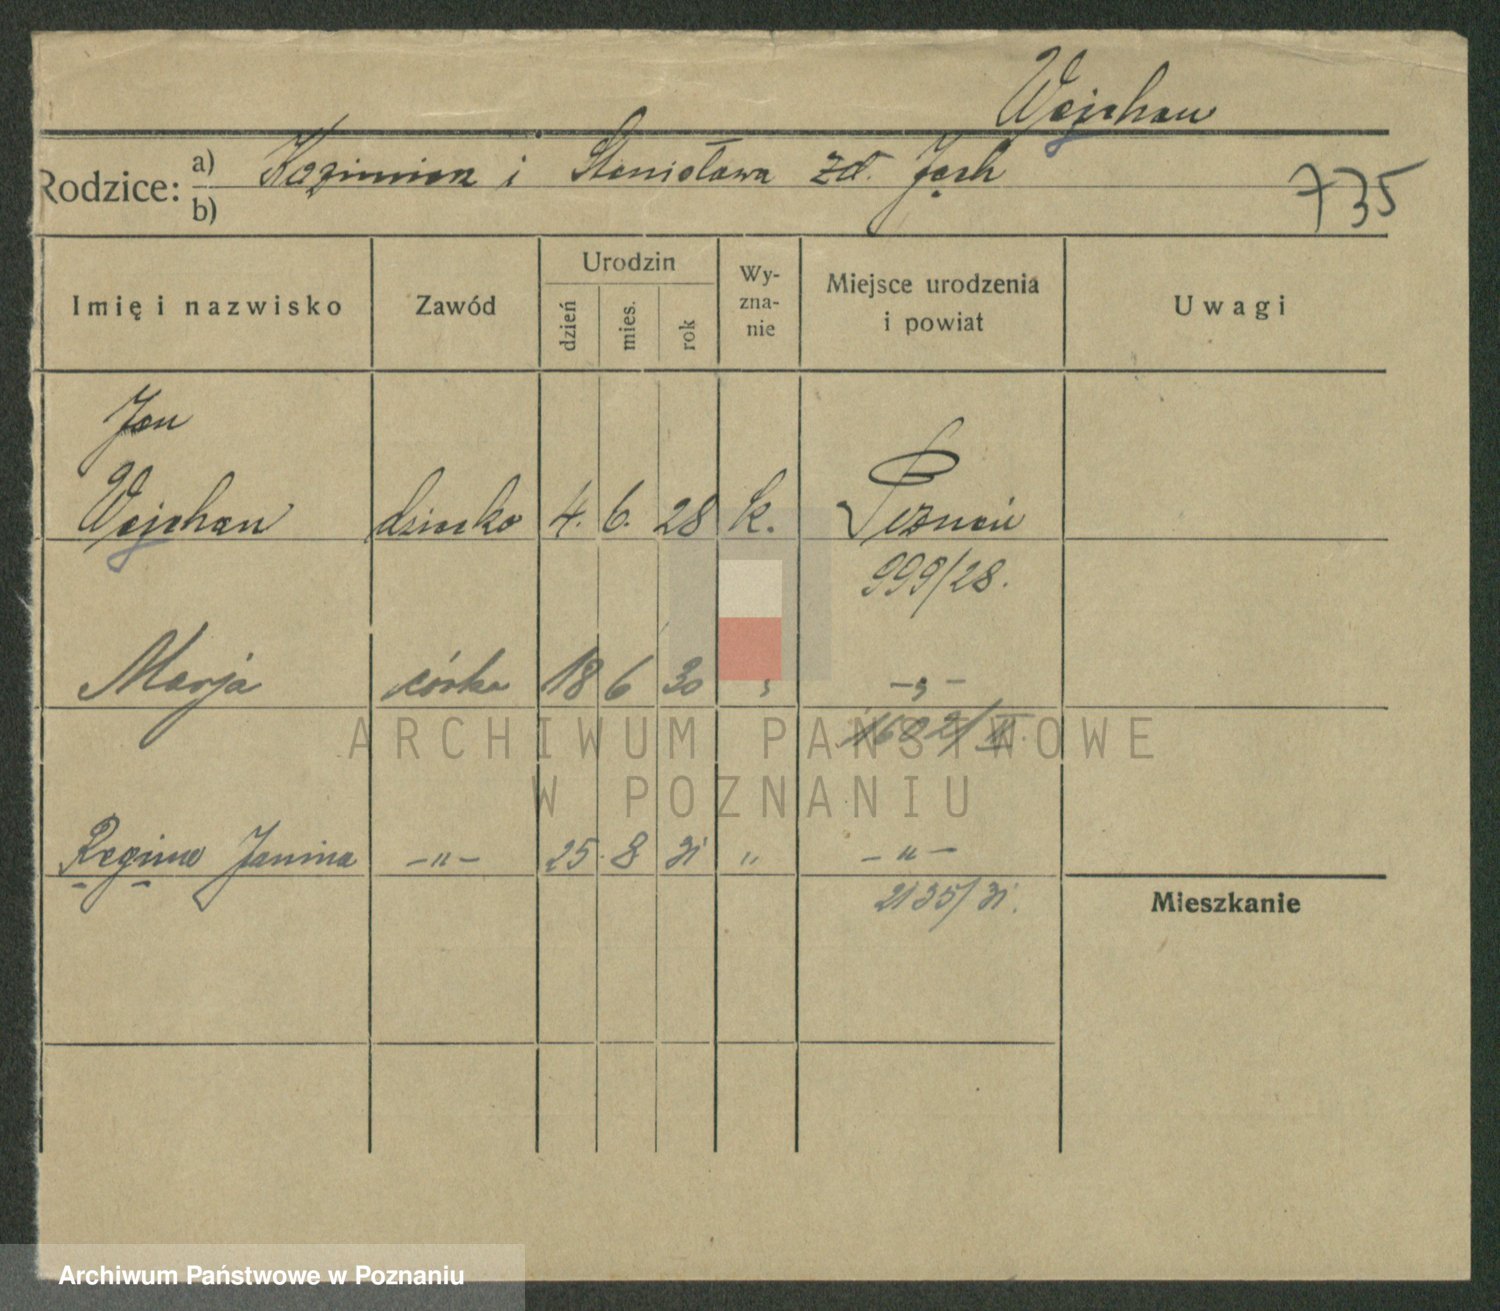 Wojchan
Rodzice: a) Kazimierz i Stanisława zd. Jech
b)
735
Imię i nazwisko Zawód Urodzin dzień mies. rok Wy-zna-nie Miejsce urodzenia i powiat Uwagi
Jan
Wojchan dziecko 4. 6. 28 k. Poznań
999/28.
Marja córka 18 6 30 " — " —
1602/II.
ARCHIWUM PAŃSTWOWE
W POZNANIU
Regina Janina — " — 25. 8 31 " — " —
2135/31.
Mieszkanie
Archiwum Państwowe w Poznaniu